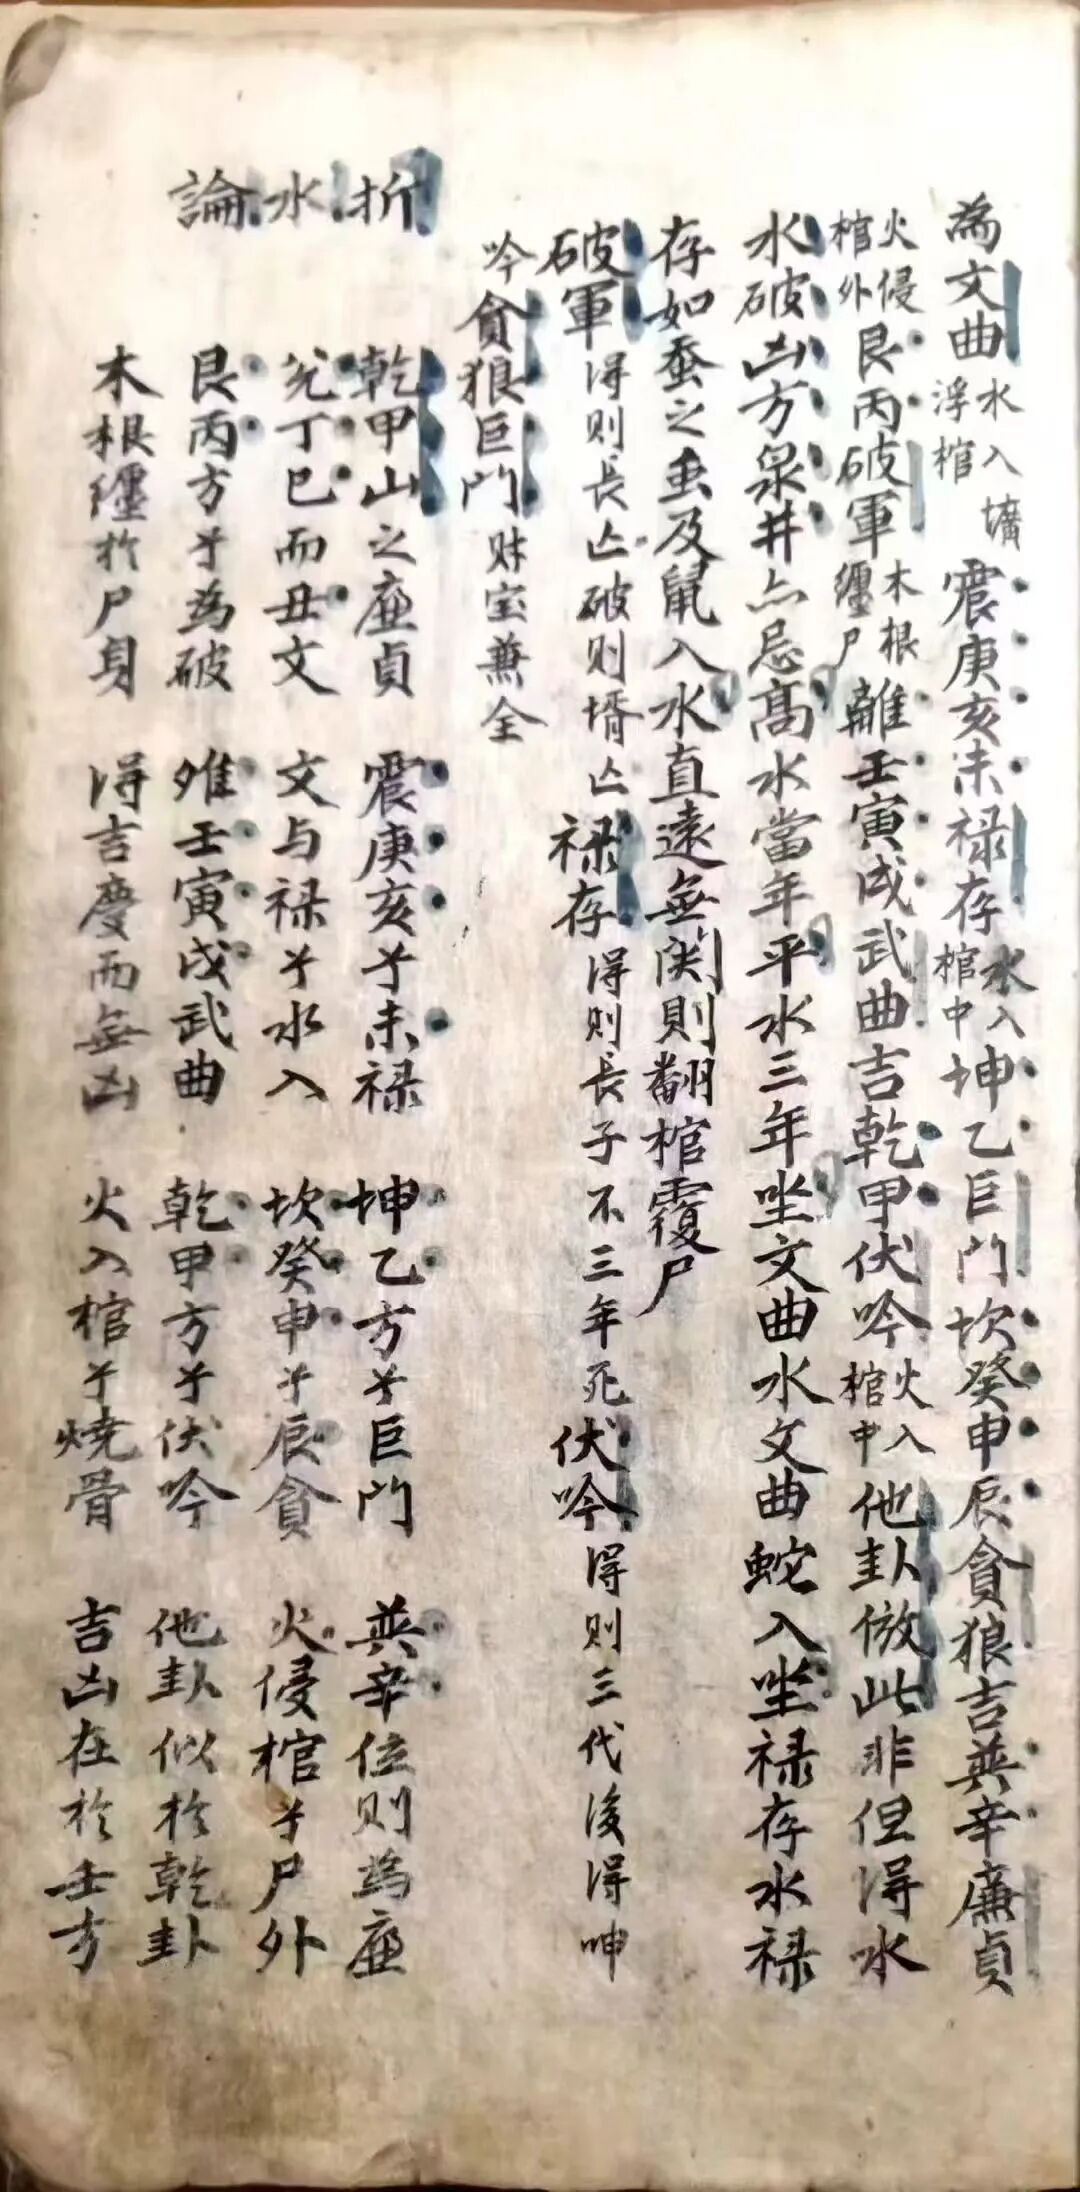 為文曲水入壙浮棺震庚亥未禄存水入棺中坤乙巨門坎癸申辰貪狼吉巽辛廉貞
火侵棺外艮丙破軍木根纏尸離壬寅戌武曲吉乾甲伏吟火入棺中他卦倣此非但得水
水破凶方泉井亦忌高水當年平水三年坐文曲水文曲蛇入坐禄存水禄
存如蚕之虫及鼠入水直遠無関則翻棺覆尸
破軍得則長亡破則壻亡禄存得則長子不三年死伏吟得則三代後得呻
吟貪狼巨門財宝兼全
折水論
乾甲山之廉貞 震庚亥兮未禄 坤乙方兮巨門 巽辛位則為廉
兊丁巳而丑文 文与禄兮水入 坎癸申兮辰貪 火侵棺兮尸外
艮丙方兮為破 难壬寅戌武曲 乾甲方兮伏吟 他卦似於乾卦
木根纏於尸身 得吉慶而無凶 火入棺兮燒骨 吉凶在於壬方